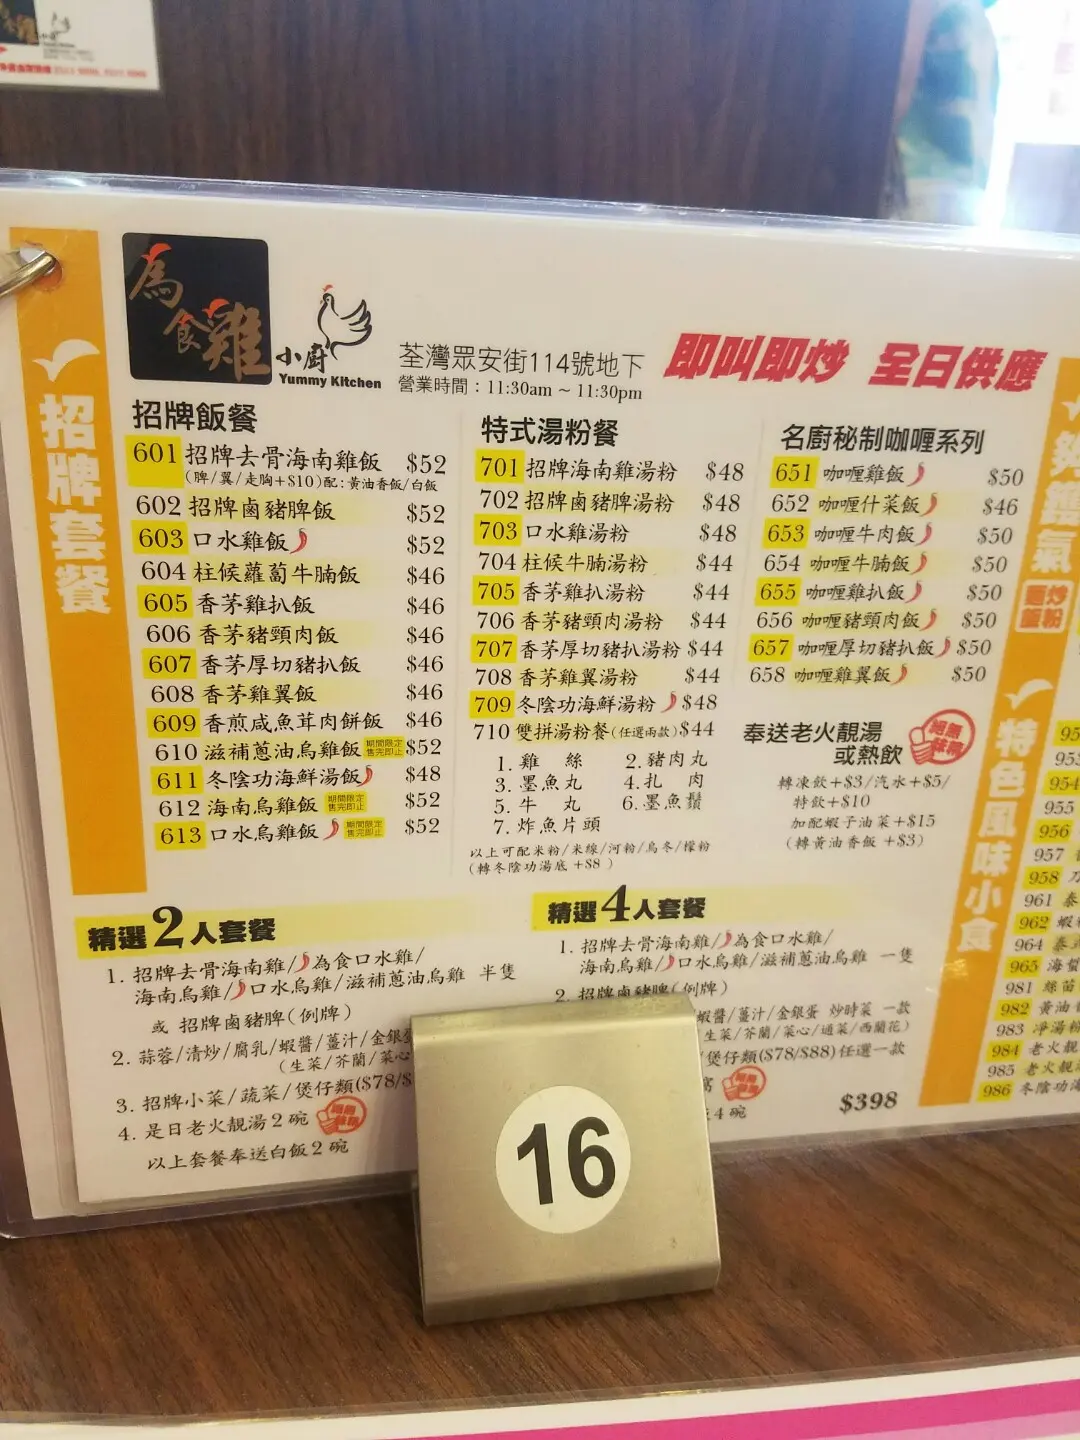 為食雞
小廚
Yummy Kitchen
荃灣眾安街114號地下
營業時間：11:30am ~ 11:30pm
即叫即炒 全日供應
招牌套餐
招牌飯餐
601 招牌去骨海南雞飯 $52
(脾/翼/走胸+$10)配:黃油香飯/白飯
602 招牌鹵豬脾飯 $52
603 口水雞飯 $52
604 柱候蘿蔔牛腩飯 $46
605 香茅雞扒飯 $46
606 香茅豬頸肉飯 $46
607 香茅厚切豬扒飯 $46
608 香茅雞翼飯 $46
609 香煎咸魚茸肉餅飯 $46
610 滋補蔥油烏雞飯 期間限定 售完即止 $52
611 冬陰功海鮮湯飯 $48
612 海南烏雞飯 期間限定 售完即止 $52
613 口水烏雞飯 期間限定 售完即止 $52
特式湯粉餐
701 招牌海南雞湯粉 $48
702 招牌鹵豬脾湯粉 $48
703 口水雞湯粉 $48
704 柱候牛腩湯粉 $44
705 香茅雞扒湯粉 $44
706 香茅豬頸肉湯粉 $44
707 香茅厚切豬扒湯粉 $44
708 香茅雞翼湯粉 $44
709 冬陰功海鮮湯粉 $48
710 雙拼湯粉餐(任選兩款) $44
1. 雞 絲 2. 豬肉丸
3. 墨魚丸 4. 扎 肉
5. 牛 丸 6. 墨魚鬚
7. 炸魚片頭
以上可配米粉/米線/河粉/烏冬/檬粉
(轉冬陰功湯底 +$8 )
名廚秘制咖喱系列
651 咖喱雞飯 $50
652 咖喱什菜飯 $46
653 咖喱牛肉飯 $50
654 咖喱牛腩飯 $50
655 咖喱雞扒飯 $50
656 咖喱豬頸肉飯 $50
657 咖喱厚切豬扒飯 $50
658 咖喱雞翼飯 $50
奉送老火靚湯
或熱飲
轉凍飲+$3/汽水+$5/
特飲+$10
加配蝦子油菜+$15
(轉黃油香飯 +$3)
精選2人套餐
1. 招牌去骨海南雞/為食口水雞/
海南烏雞/口水烏雞/滋補蔥油烏雞 半隻
或 招牌鹵豬脾(例牌)
2. 蒜蓉/清炒/腐乳/蝦醬/薑汁/金銀
(生菜/芥蘭/菜心
3. 招牌小菜/蔬菜/煲仔類($78/$
4. 是日老火靚湯2碗
以上套餐奉送白飯2碗
精選4人套餐
1. 招牌去骨海南雞/為食口水雞/
海南烏雞/口水烏雞/滋補蔥油烏雞 一隻
2. 招牌鹵豬脾(例牌)
蝦醬/薑汁/金銀蛋 炒時菜 一款
生菜/芥蘭/菜心/通菜/西蘭花)
煲仔類($78/$88)任選一款
4碗
$398
16
特色風味小食
954
955
956
957
958
961
962
964
965
981
982 黃油
983 淨湯粉
984 老火靚
985 老火靚
986 冬陰功